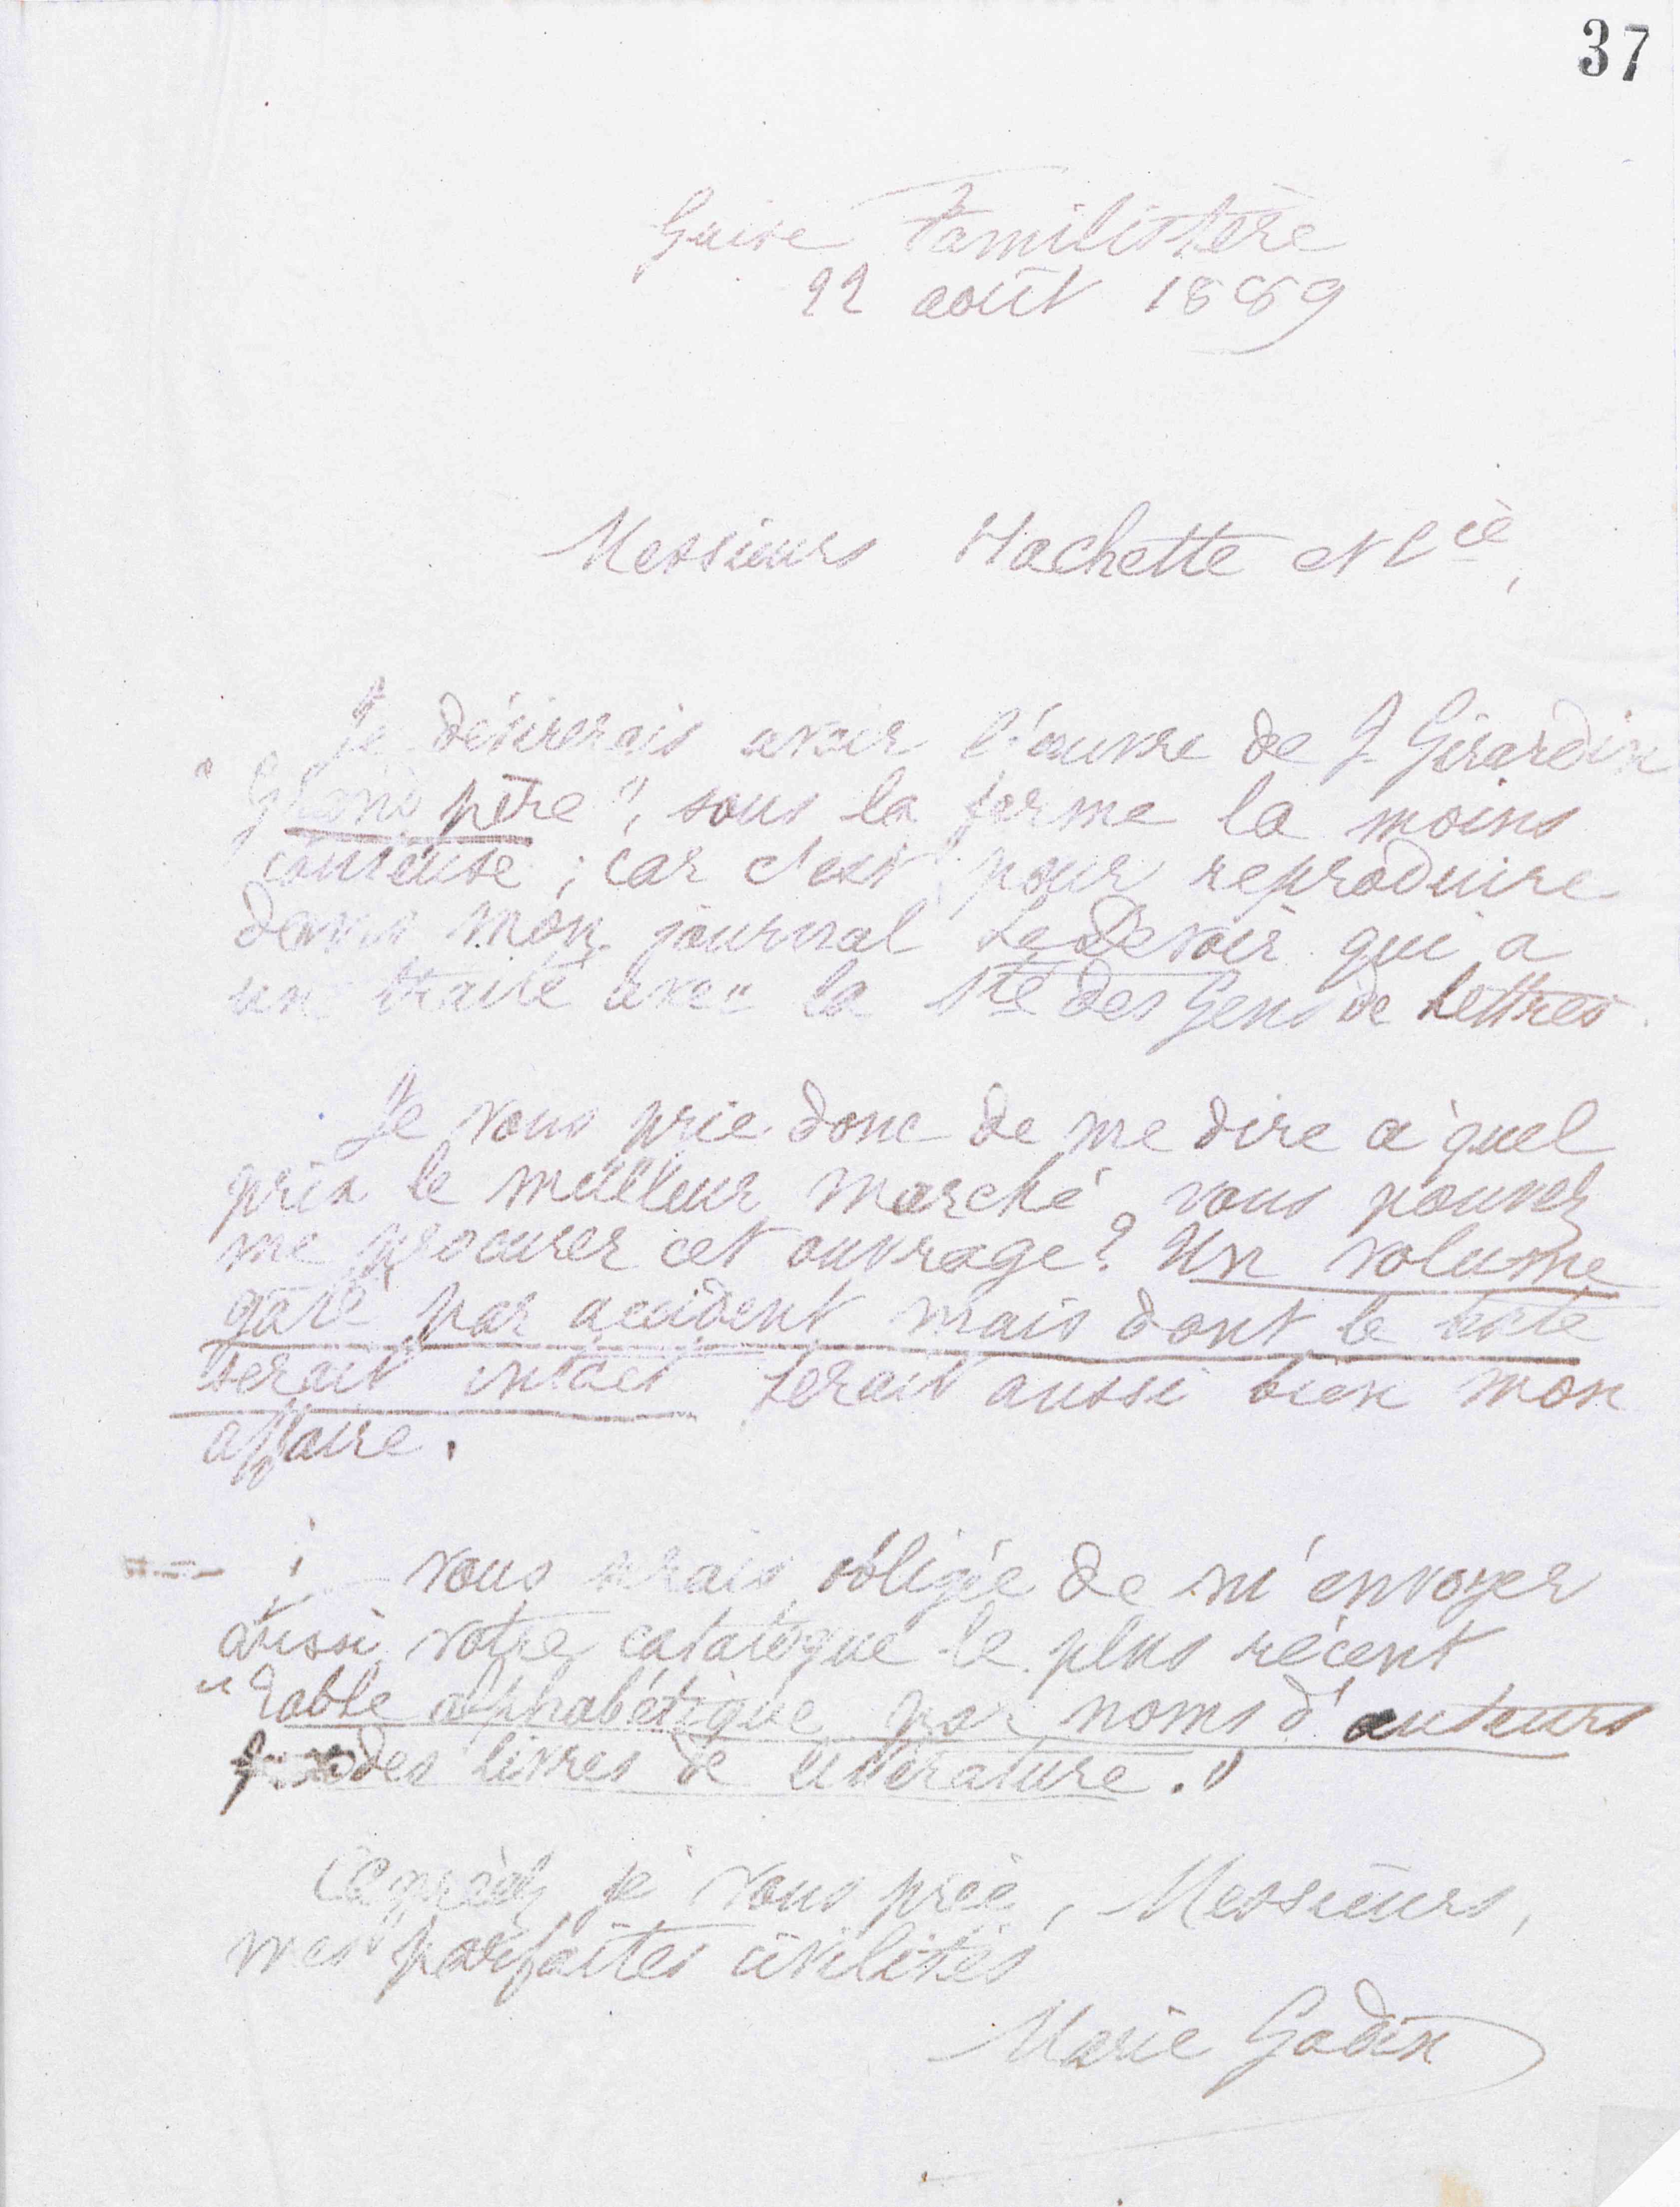 37
Guise Familistère
22 août 1889
Messieurs Hachette et Cie,
Je désirerais avoir l'œuvre de J. Girardin
"Grand père", sous la forme la moins
coûteuse ; car c'est pour reproduire
dans mon journal Le Devoir qui a
un traité avec la Sté des Gens de Lettres.
Je vous prie donc de me dire à quel
prix le meilleur marché vous pouvez
me procurer cet ouvrage ? Un volume
gâté par accident mais dont le texte
serait intact ferait aussi bien mon
affaire.
vous serais obligée de m'envoyer
aussi votre catalogue le plus récent
"Table alphabétique par noms d'auteurs
des livres de littérature."
Agréez, je vous prie, Messieurs,
mes parfaites civilités
Marie Godin